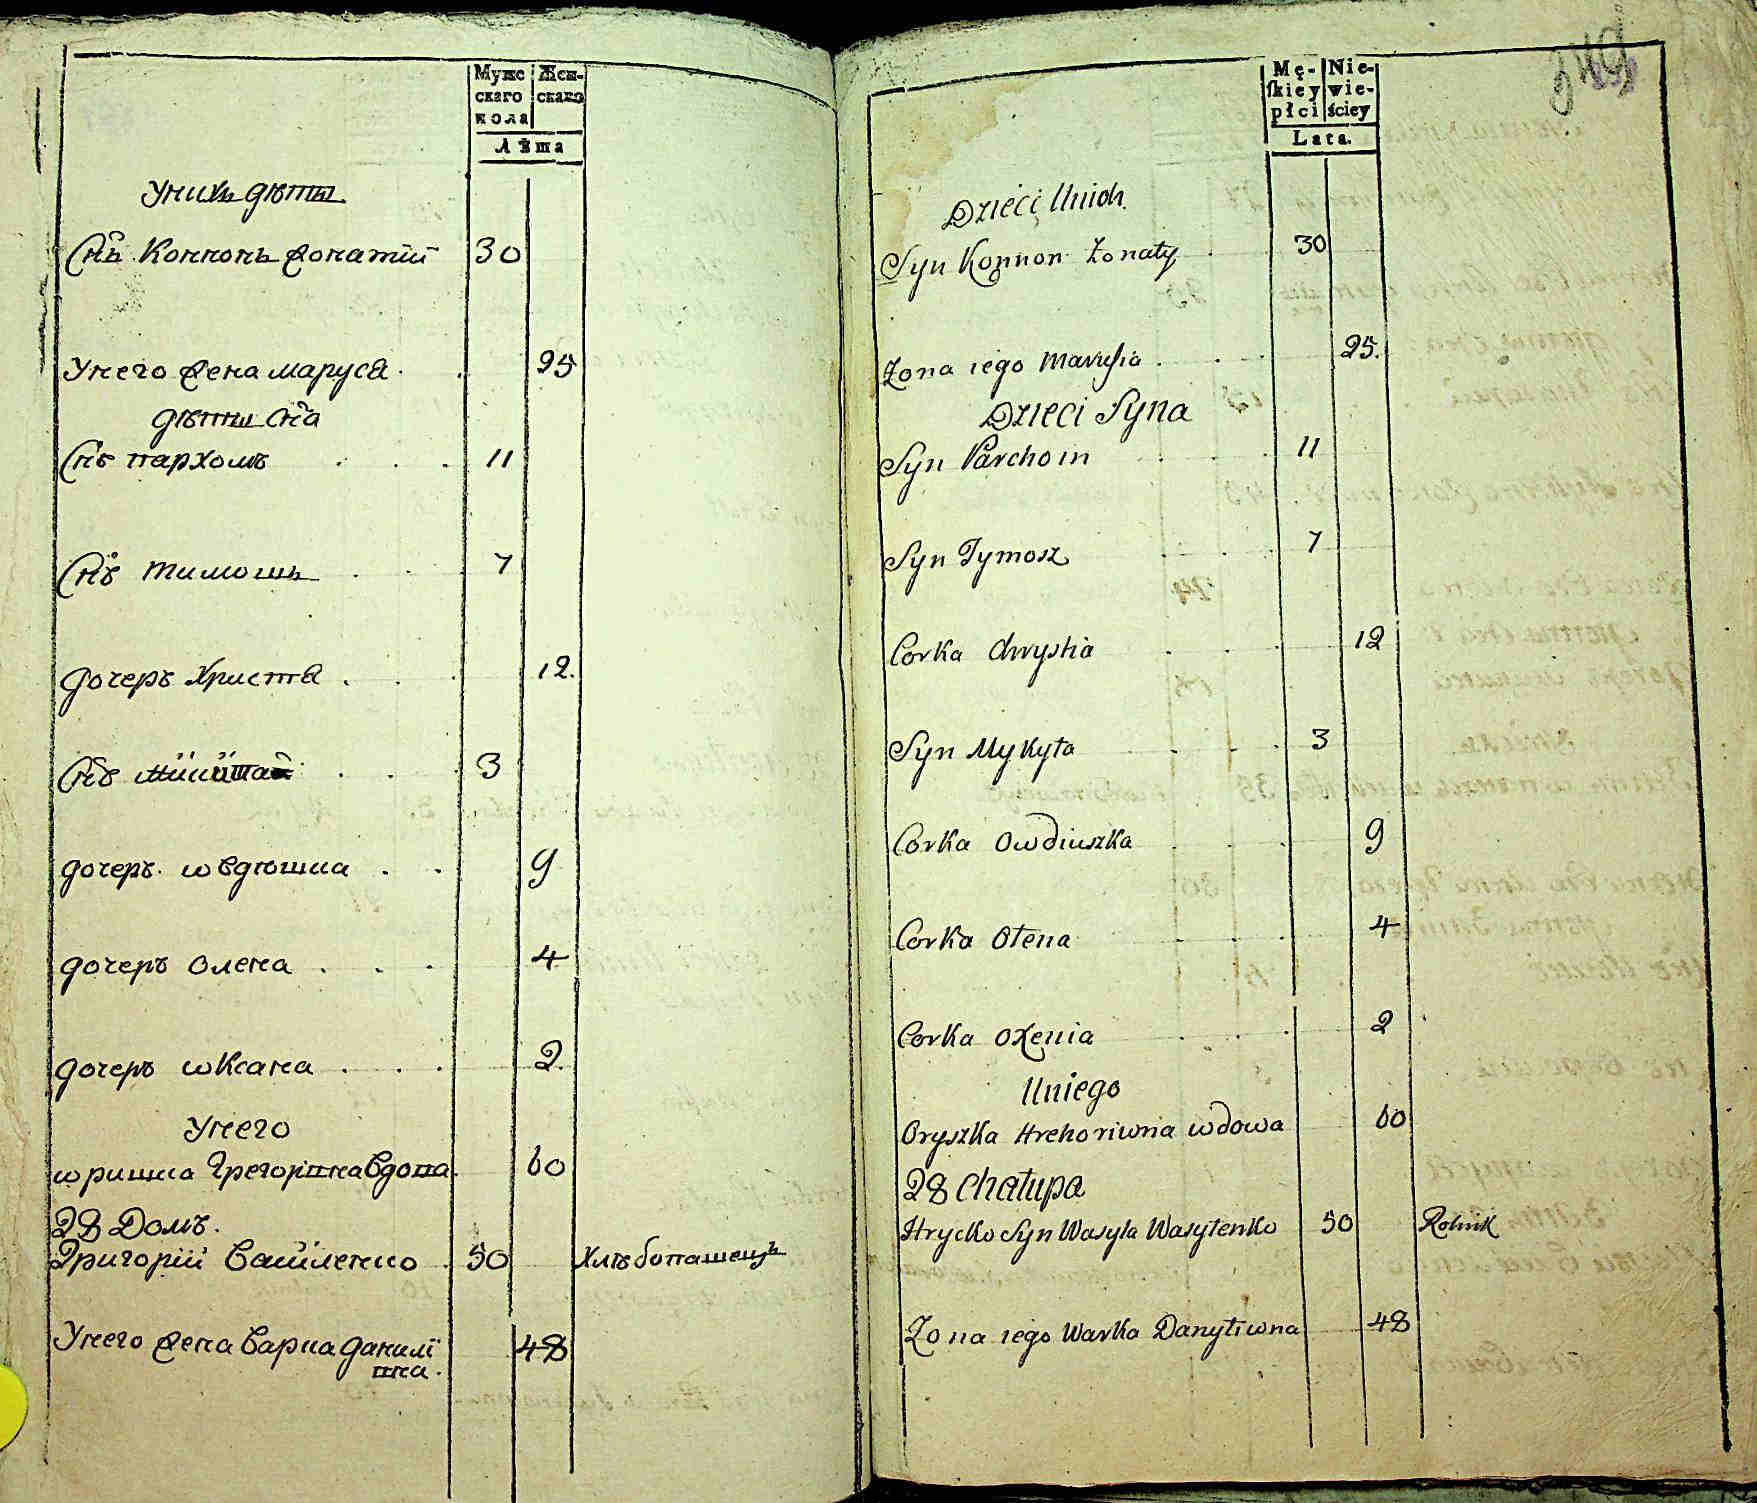 Мужс Жен-
скаго скаго
пола
Лѣта
Унихъ дѣти
Снъ Коннонъ жонатій 30
Унего жена маруся 25
дѣти сна
Снъ пархомъ 11
Снъ тимошъ 7
дочеръ Христя 12.
Снъ 3
дочеръ ѡвдюшка 9
дочеръ Олена 4
дочеръ ѡксана 2.
Унего
ѡришка Грегорівна вдова 60
28 Домъ.
Григорій Василенко 50 Хлѣбопашецъ
Унего жена варка данилі 48
вна.
Mę- Nie-
skiey wie-
płci ściey
Lata.
Dzieci Unich
Syn Konnon Żonaty 30
Żona iego Marusia 25.
Dzieci Syna
Syn Parchom 11
Syn Tymosz 7
Corka Chrystia 12
Syn Mykyta 3
Corka Owdiuszka 9
Corka Ołena 4
Corka Oxenia 2
Uniego
Oryszka Hrehoriwna wdowa 60
28 Chałupa
Hrycko Syn Wasyla Wasylenko 50 Rolnik
Żona iego Warka Danyliwna 48